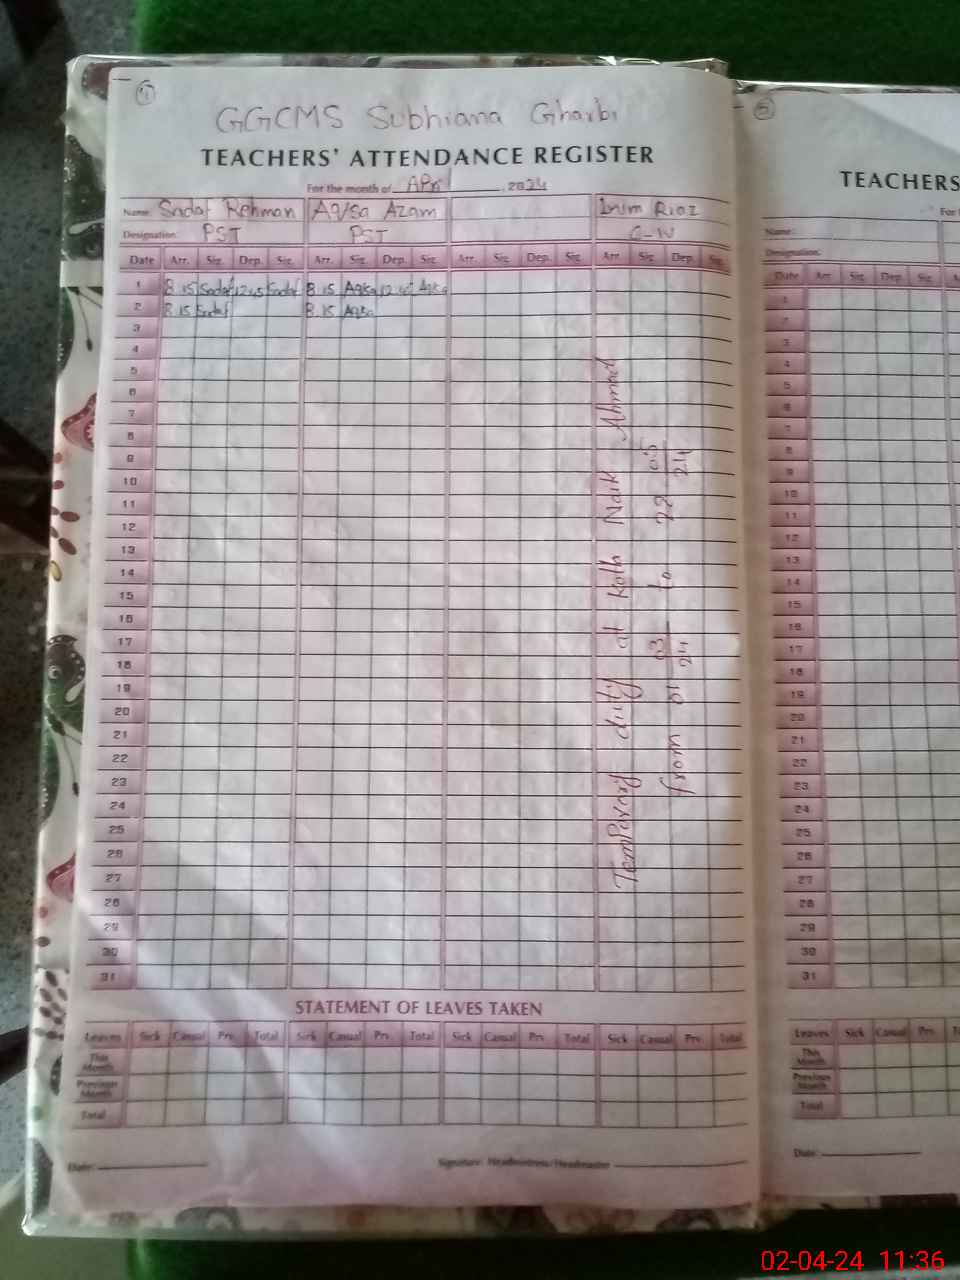 1
GGCMS Subhiana Gharbi
TEACHERS' ATTENDANCE REGISTER
For the month of April, 2024
Name: Sadaf Rehman Aqsa Azam Irum Riaz
Designation: PST PST C-IV
Date Arr. Sig. Dep. Sig. Arr. Sig. Dep. Sig. Arr. Sig. Dep. Sig. Arr. Sig. Dep. Sig.
1 8.15 Sadaf 12.45 Sadaf 8.15 Aqsa 12.45 Aqsa
2 8.15 Sadaf 8.15 Aqsa
3
4
5
6
7
8
9
10
11
12
13
14
15
16
17
18
19
20
21
22
23
24
25
26
27
28
29
30
31
TemPorary duty at Kotla Naik Ahmad
from 01 03/24 to 22 05/24
STATEMENT OF LEAVES TAKEN
Leaves Sick Casual Prv. Total Sick Casual Prv. Total Sick Casual Prv. Total Sick Casual Prv. Total
This Month
Previous Month
Total
Date: Signature: Headmistress/Headmaster
2
TEACHERS
For
Name:
Designation:
Date Arr. Sig. Dep. Sig.
1
2
3
4
5
6
7
8
9
10
11
12
13
14
15
16
17
18
19
20
21
22
23
24
25
26
27
28
29
30
31
Leaves Sick Casual Prv.
This Month
Previous Month
Total
Date:
02-04-24 11:36